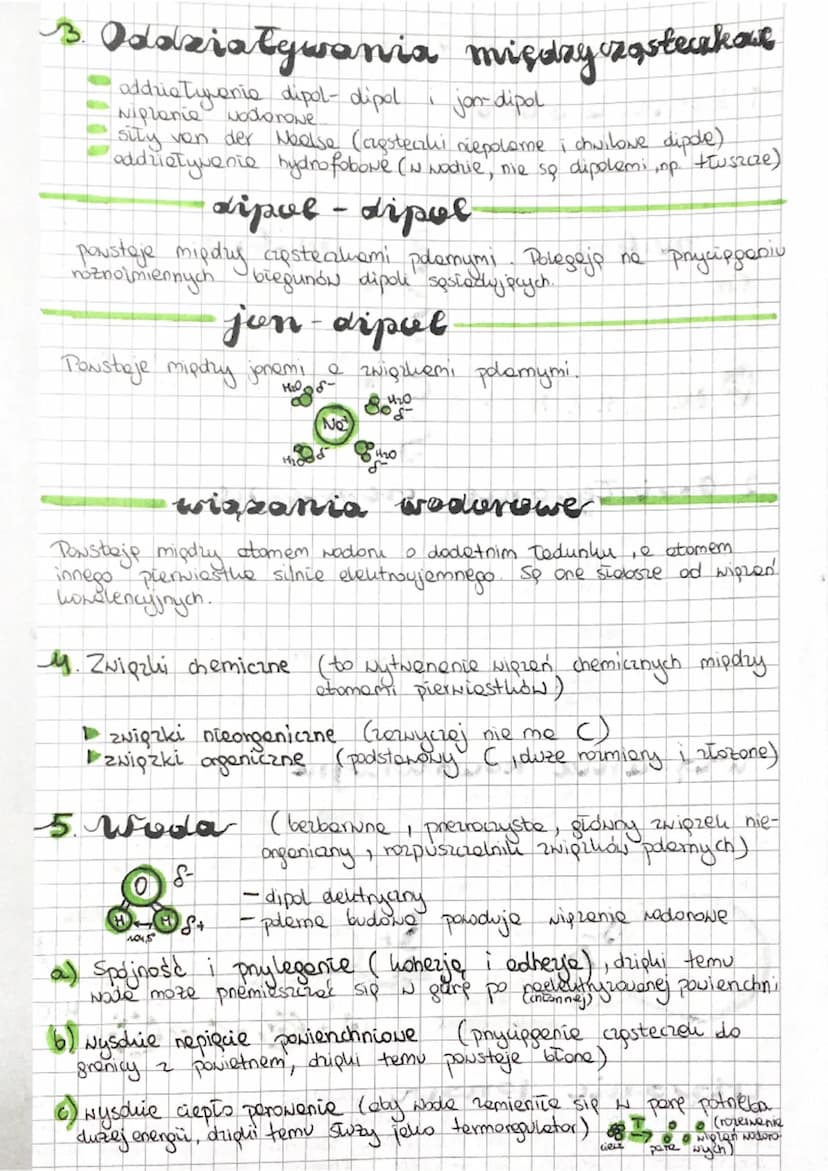 3. Oddziaływania międzycząsteczkowe
oddziaływania dipol-dipol i jon-dipol
wiązania wodorowe
siły van der Waalsa (cząsteczki niepolarne i chwilowe dipole)
oddziaływania hydrofobowe (w wodzie, nie są dipolami, np. tłuszcze)
dipol - dipol
powstają między cząsteczkami polarnymi. Polegają na przyciąganiu
różnoimiennych biegunów dipoli sąsiadujących.
jon - dipol
Powstaje między jonami a związkami polarnymi.
H2O δ-
H2O δ-
Na+
H2O δ-
H2O δ-
wiązania wodorowe
Powstają między atomem wodoru o dodatnim ładunku, a atomem
innego pierwiastka silnie elektroujemnego. Są one słabsze od wiązań
kowalencyjnych.
4. Związki chemiczne (to wytworzenie wiązań chemicznych między
atomami pierwiastków)
związki nieorganiczne (zazwyczaj nie ma C)
związki organiczne (podstawowy C, duże rozmiary i złożone)
5. Woda (bezbarwna, przezroczysta, główny związek nie-
organiczny, rozpuszczalnik związków polarnych)
O δ-
H H δ+
104,5°
- dipol elektryczny
- polarna budowa powoduje wiązania wodorowe
a) Spójność i przyleganie (kohezja i adhezja), dzięki temu
woda może przemieszczać się w górę po naelektryzowanej powierzchni
b) wysokie napięcie powierzchniowe (przyciąganie cząsteczek do
granicy z powietrzem, dzięki temu powstaje błona)
c) wysokie ciepło parowania (aby woda zamieniła się w parę potrzeba
dużej energii, dzięki temu służy jako termoregulator)
T
ciecz para
(rozerwanie
wiązań wodoro-
wych)